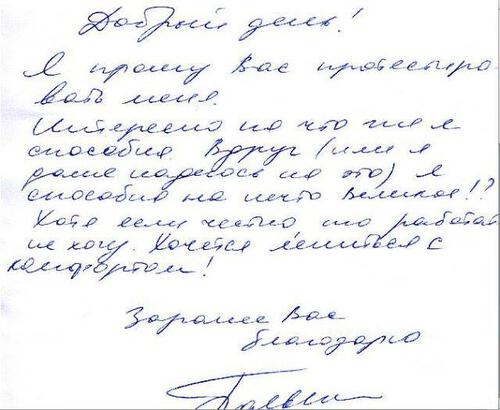 Добрый день!
Я прошу Вас протестиро-
вать меня.
Интересно на что же я
способна. Вдруг (или я
даже надеюсь на это) я
способна на нечто Великое!?
Хотя если честно то работать
не хочу. Хочется лениться с
комфортом!
Заранее Вас
благодарю